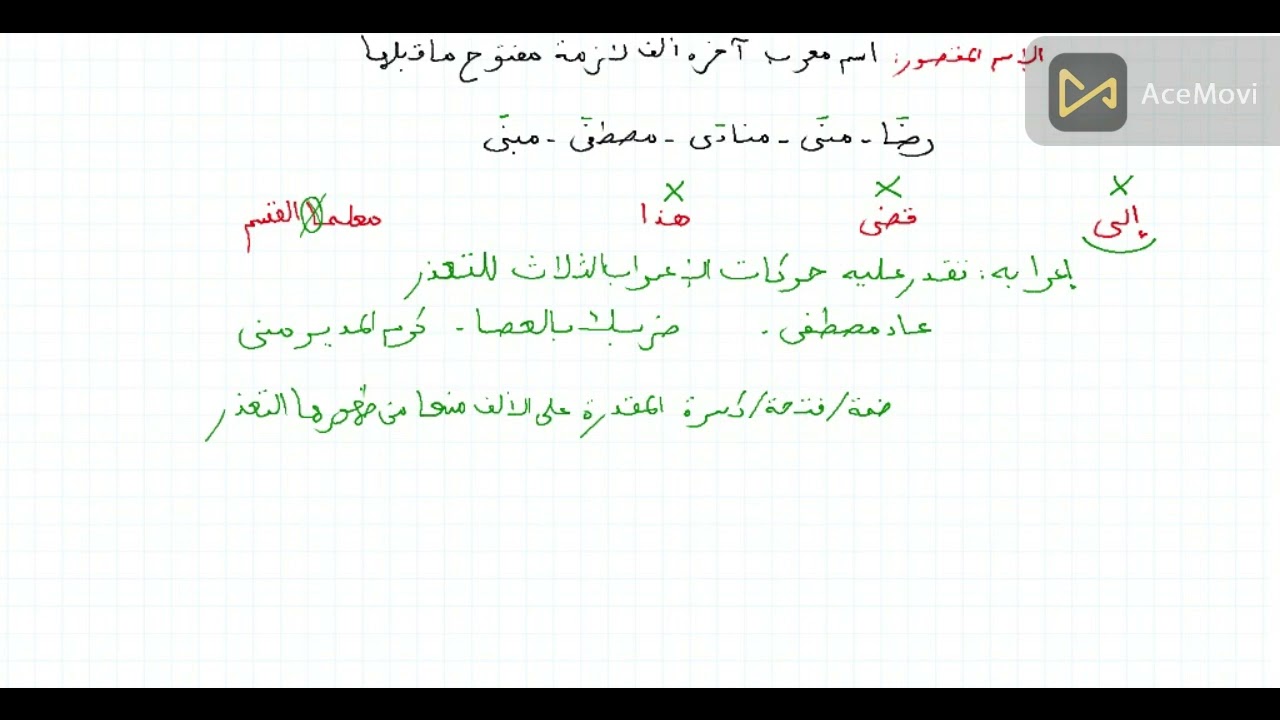 الإسم المقصور: اسم معرب آخره ألف لازمة مفتوح ما قبلها
AceMovi
رضَا - منَى - منادَى - مصطفَى - مبنَى
إلى قضى هذا معلما القسم
إعرابه: تقدر عليه حركات الإعراب الثلاث للتعذر
عاد مصطفى . ضربك بالعصا . كرم المدير منى
ضمة/فتحة/كسرة المقدرة على الألف منعا من ظهورها التعذر